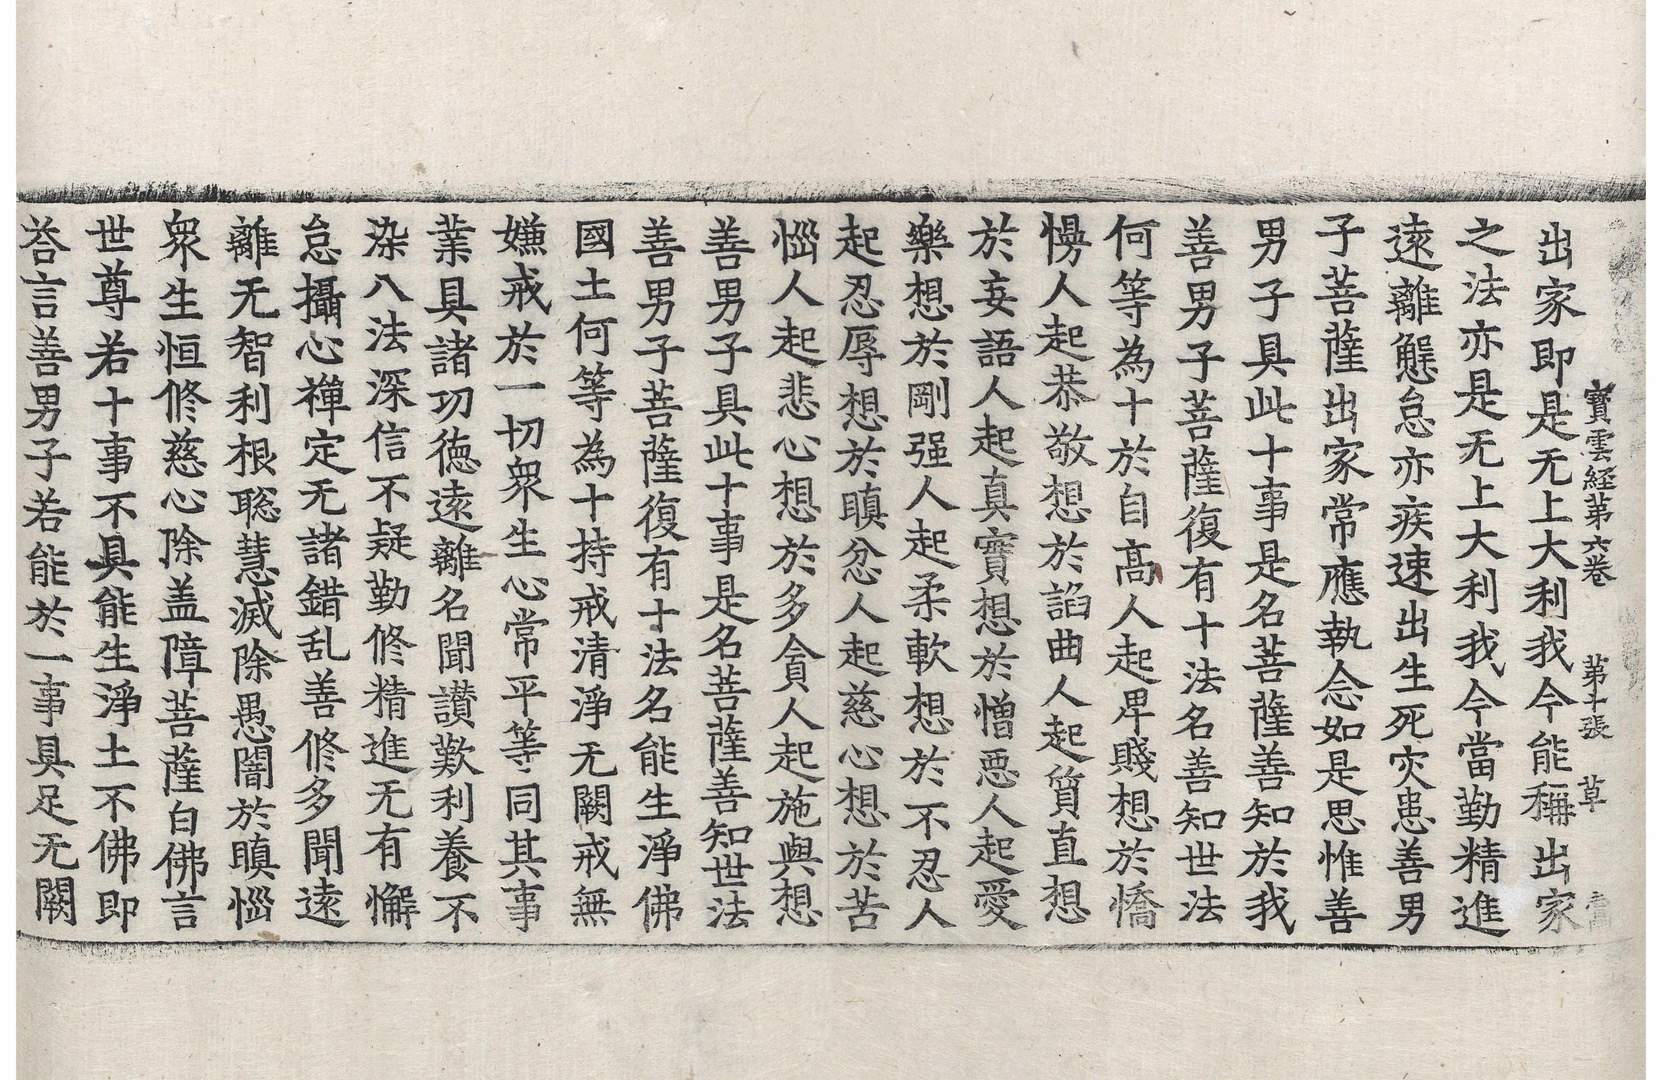 寶雲経第六卷 第十張 草
出家即是无上大利我今能稱出家
之法亦是无上大利我今當勤精進
遠離懈怠亦疾速出生死灾患善男
子菩薩出家常應執念如是思惟善
男子具此十事是名菩薩善知於我
善男子菩薩復有十法名善知世法
何等為十於自高人起卑賤想於憍
慢人起恭敬想於諂曲人起質直想
於妄語人起真實想於憎惡人起愛
樂想於剛强人起柔軟想於不忍人
起忍辱想於瞋忿人起慈心想於苦
惱人起悲心想於多貪人起施與想
善男子具此十事是名菩薩善知世法
善男子菩薩復有十法名能生淨佛
國土何等為十持戒清淨无闕戒無
嫌戒於一切衆生心常平等同其事
業具諸功徳遠離名聞讃歎利養不
染八法深信不疑勤修精進无有懈
怠攝心禪定无諸錯乱善修多聞遠
離无智利根聡慧滅除愚闇於瞋惱
衆生恒修慈心除盖障菩薩白佛言
世尊若十事不具能生淨土不佛即
荅言善男子若能於一事具足无闕